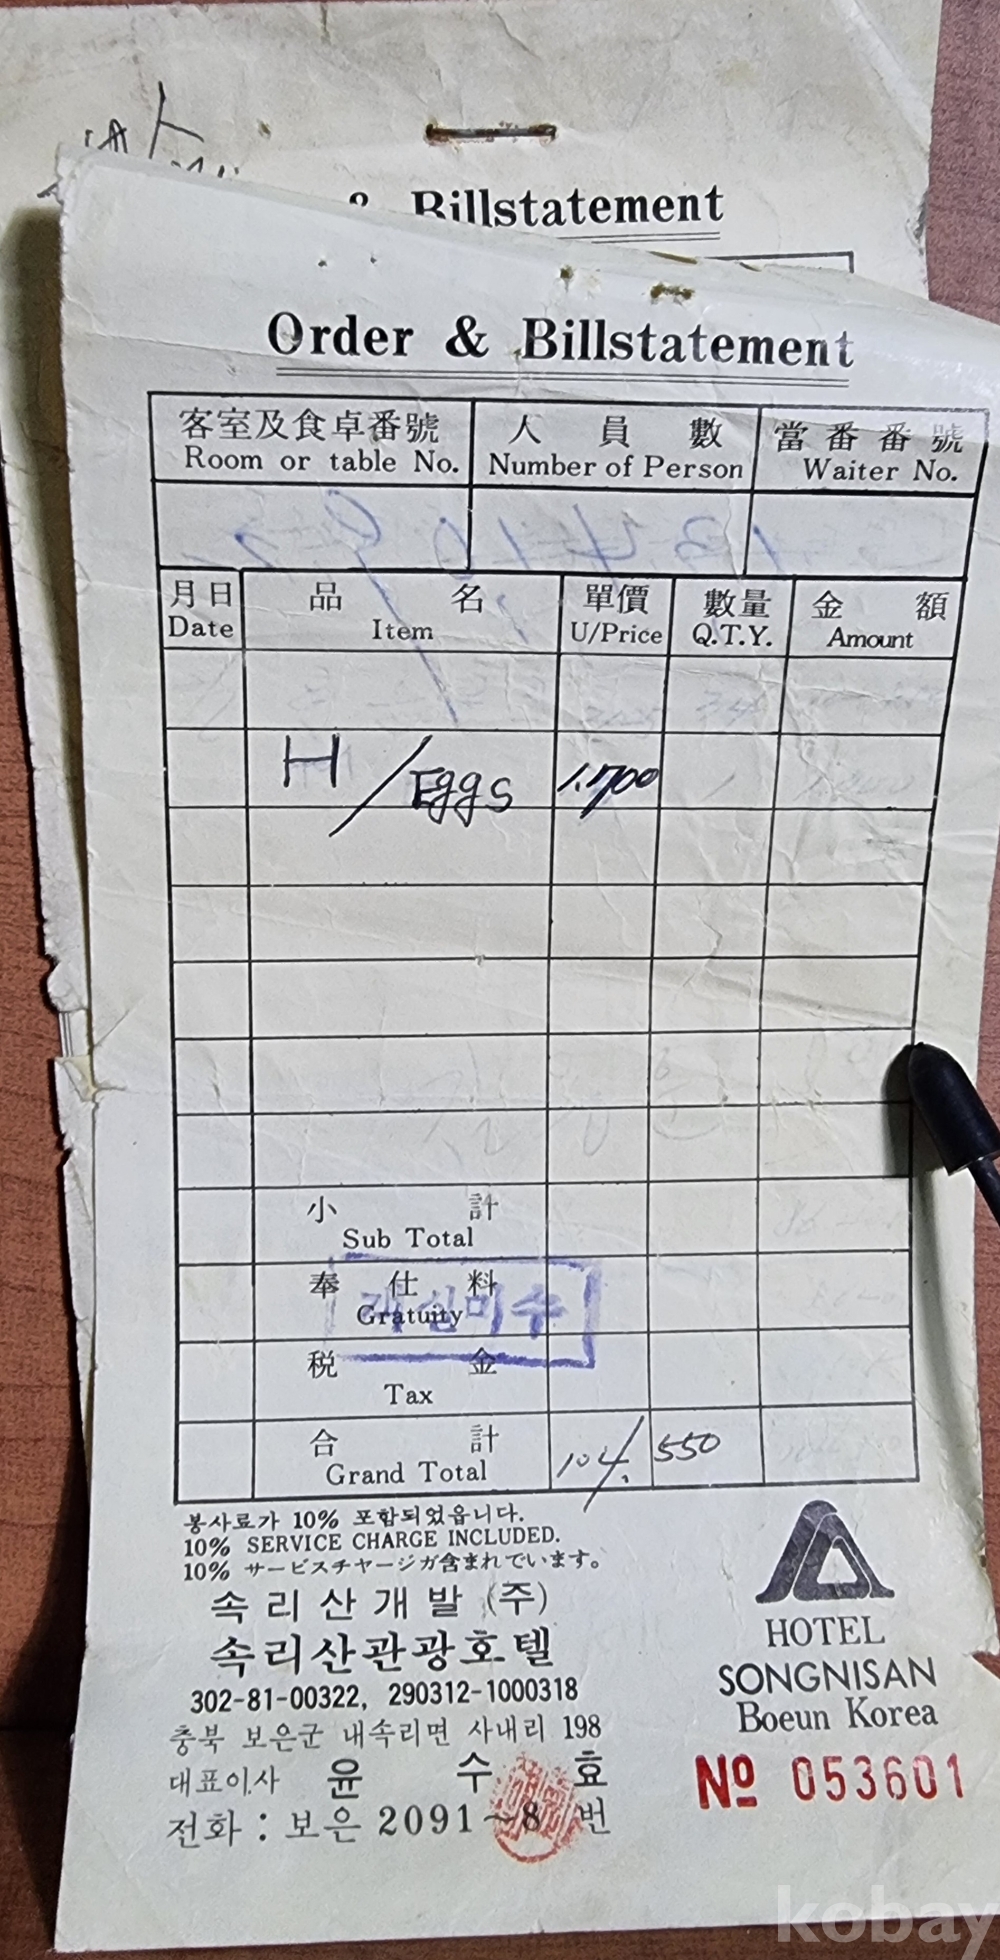 & Billstatement
Order & Billstatement
客室及食卓番號 人員數 當番番號
Room or table No. Number of Person Waiter No.
月日 品名 單價 數量 金額
Date Item U/Price Q.T.Y. Amount
H/Eggs 1.700
小計
Sub Total
奉仕料
Gratuity
税金
Tax
合計
Grand Total 104,550
봉사료가 10% 포함되었읍니다.
10% SERVICE CHARGE INCLUDED.
10% サービスチヤージガ含まれでいます。
속리산개발 (주)
속리산관광호텔
302-81-00322, 290312-1000318
충북 보은군 내속리면 사내리 198
대표이사 윤수효
전화 : 보은 2091~8번
HOTEL
SONGNISAN
Boeun Korea
№ 053601
kobay